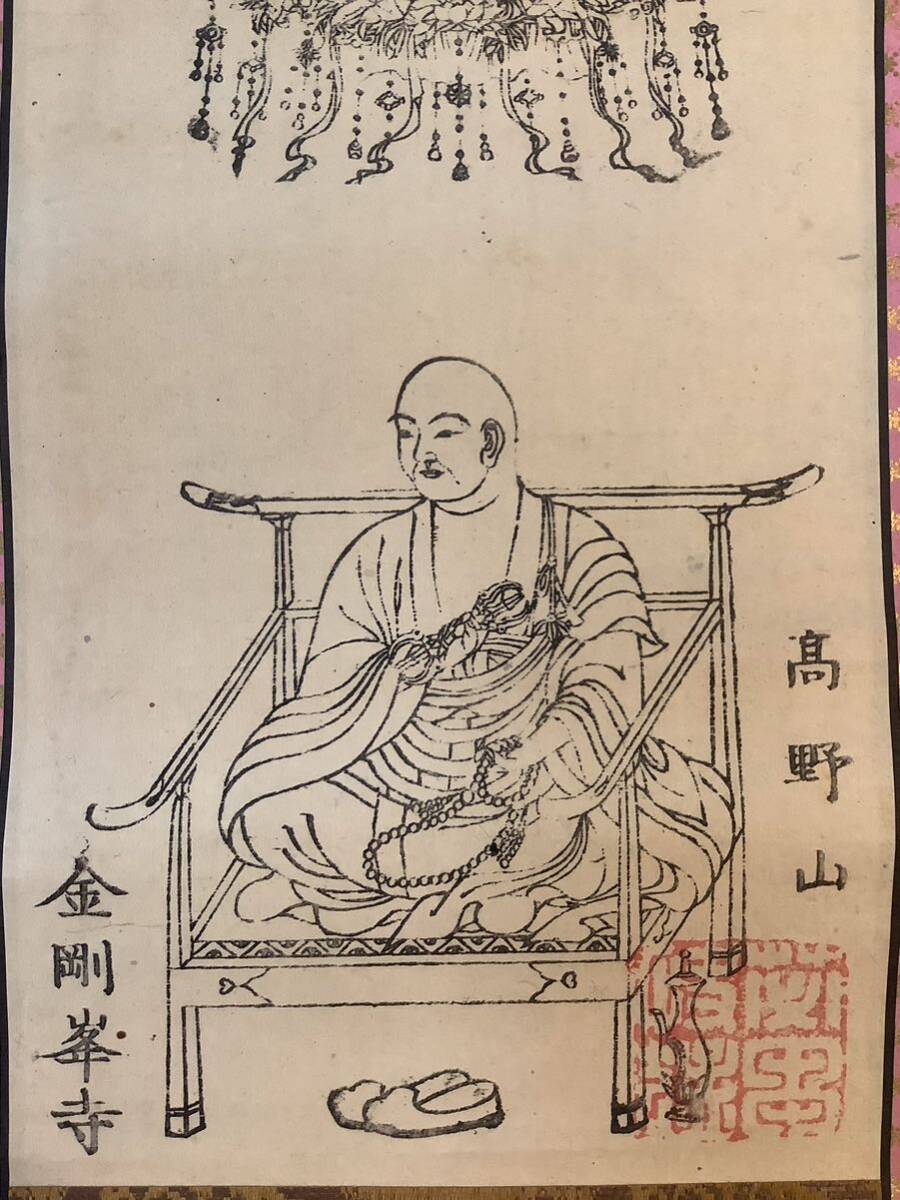 高野山
金剛峯寺